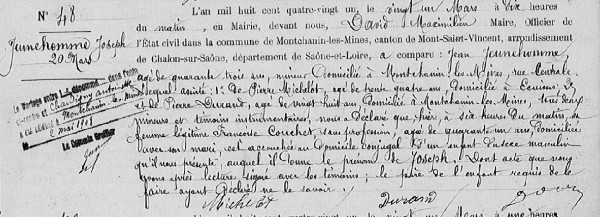 N° 48
Jeunehomme Joseph
20 Mars
L'an mil huit cent quatre-vingt un, le vingt un Mars à dix heures
du matin, en Mairie, devant nous, David Maximilien Maire, Officier de
l'État civil dans la commune de Montchanin-les-Mines, canton de Mont-Saint-Vincent, arrondissement
de Chalon-sur-Saône, département de Saône-et-Loire, a comparu : Jean Jeunehomme
agé de quarante trois ans, mineur Domicilié à Montchanin-les-Mines, rue Centrale
Lequel assisté : 1° De Pierre Michelot, agé de trente quatre ans, Domicilié à Ecuisses, 2°
et de Pierre Durand, agé de vingt huit ans, Domicilié à Montchanin-les-Mines, tous deux
mineurs et témoins instrumentaires, nous a Déclaré que hier, à six heures du matin, sa
femme légitime Françoise Couchet, sans profession, agée de quarante un ans, Domiciliée
avec son mari, est accouchée au Domicile conjugal D'un enfant Du sexe masculin
qu'il nous présente, auquel il Donne le prénom de Joseph. Dont acte que nous
avons après lecture signé avec les témoins ; le père de l'enfant requis de le
faire ayant Déclaré ne le savoir.
Michelot Durand David
Le Mariage entre
et Chandigny
a été célébré à Montchanin-les-Mines
2 mai 1908
Le Commis Greffier
L'an mil huit cent quatre-vingt un, le vingt un Mars à une heures